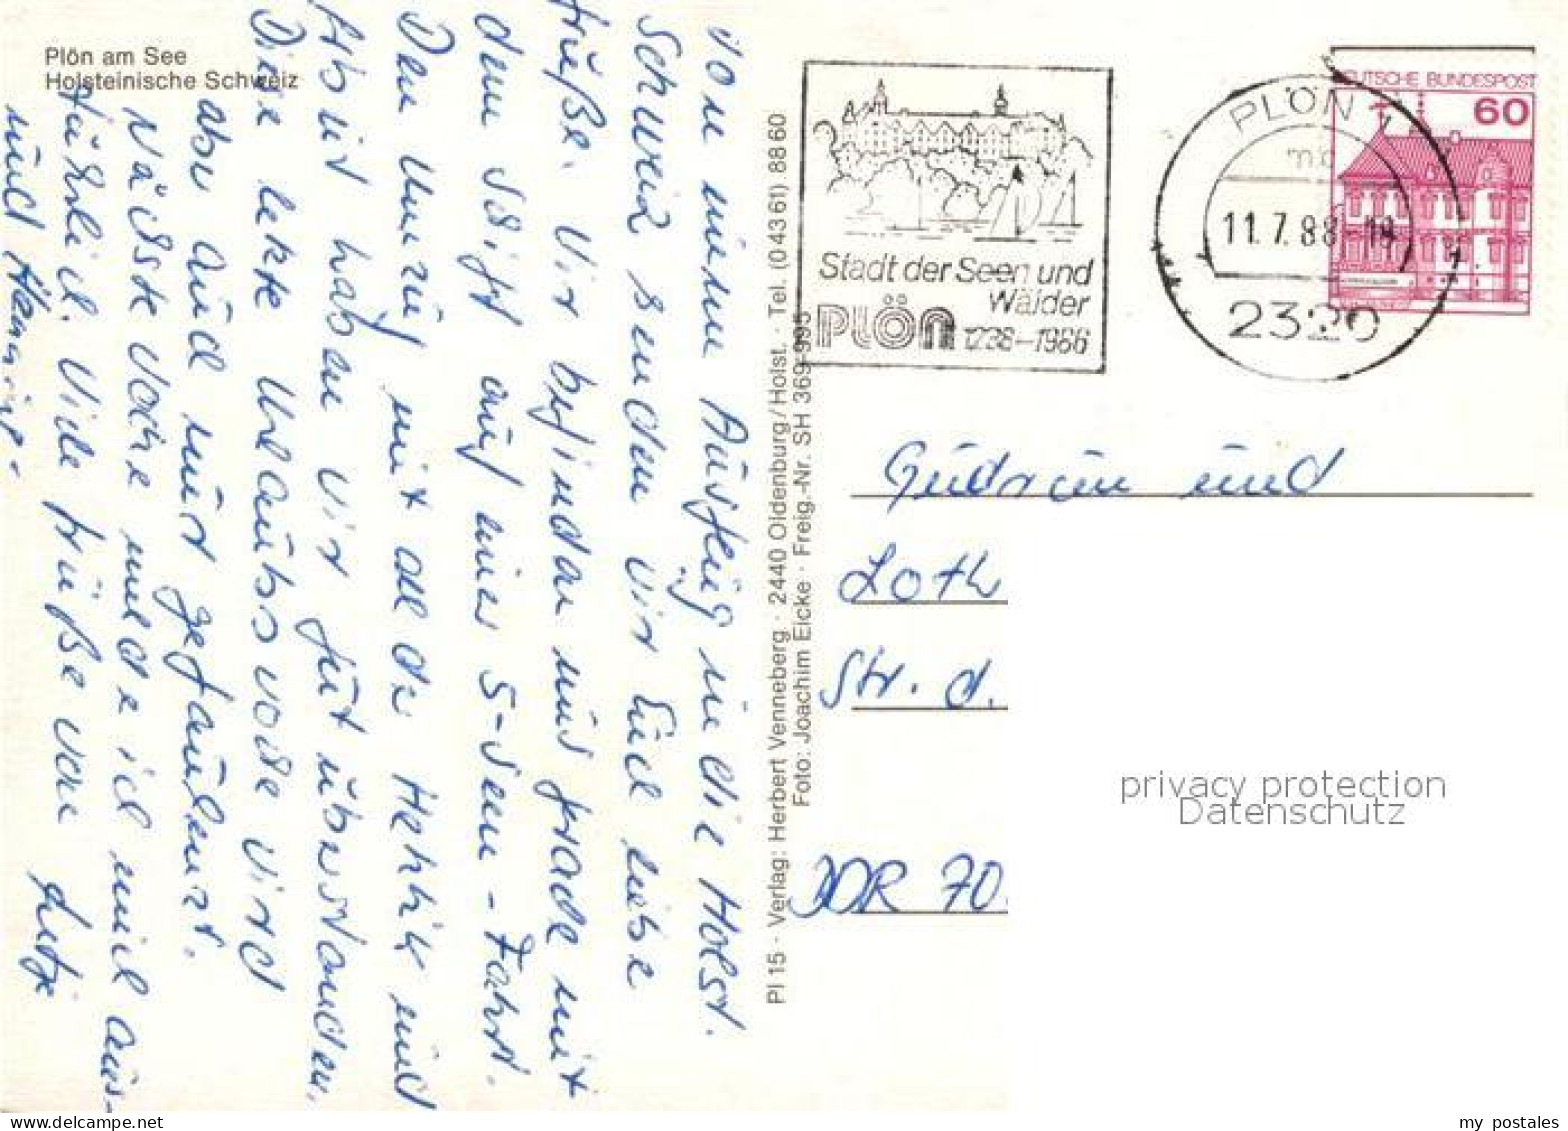 Plön am See
Holsteinische Schweiz
Von einem Ausflug in die Holst.
Schweiz senden wir Euch liebe
Grüße. Wir befinden uns grade mit
dem Schiff auf einer 5-Seen-Fahrt.
Den Umzug mit all der Hektik und
Arbeit haben wir gut überstanden.
Diese letzte Urlaubswoche wird
aber auch nur gefaulenzt.
Nächste Woche melde ich mich aus-
führlich. Viele Grüße von
und Henning.
Pl 15 · Verlag: Herbert Venneberg · 2440 Oldenburg/Holst. · Tel. (0 43 61) 88 60
Foto: Joachim Eicke · Freig.-Nr. SH 369-995
Stadt der Seen und
Wälder
PLÖN
DEUTSCHE BUNDESPOST
60
PLÖN 1
mb
11.7.88
2320
Gudrun und
Loth
Str. d.
DDR 70
privacy protection
Datenschutz
my postales